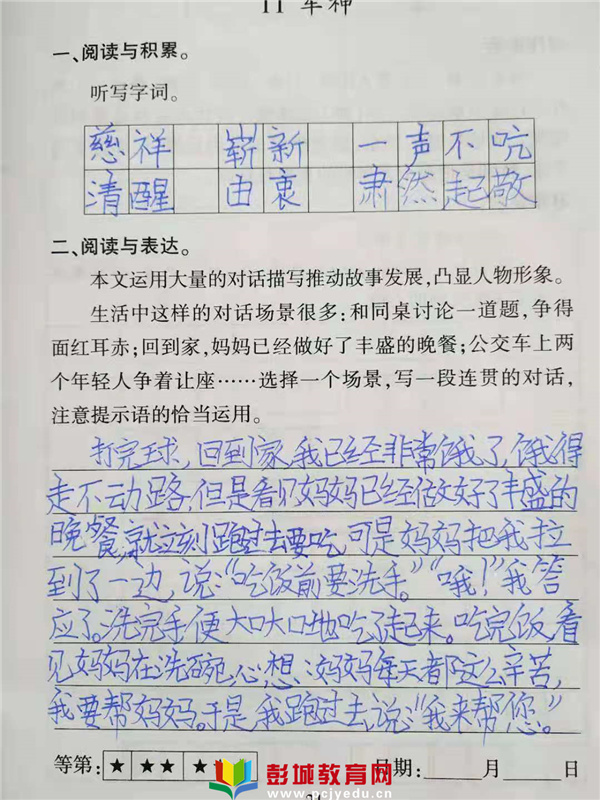 11 军神
一、阅读与积累。
听写字词。
慈祥 崭新 一声不吭
清醒 由衷 肃然起敬
二、阅读与表达。
本文运用大量的对话描写推动故事发展,凸显人物形象。
生活中这样的对话场景很多:和同桌讨论一道题,争得
面红耳赤;回到家,妈妈已经做好了丰盛的晚餐;公交车上两
个年轻人争着让座……选择一个场景,写一段连贯的对话,
注意提示语的恰当运用。
打完球,回到家,我已经非常饿了,饿得
走不动路,但是看见妈妈已经做好了丰盛的
晚餐,就立刻跑过去要吃,可是妈妈把我拉
到了一边,说:“吃饭前要洗手。”“哦!”我答
应了。洗完手便大口大口地吃了起来。吃完饭,看
见妈妈在洗碗,心想:妈妈每天都这么辛苦,
我要帮妈妈。于是,我跑过去,说:“我来帮您。”
等第:★★★★ 日期: 月 日
彭城教育网
www.pcjyedu.cn